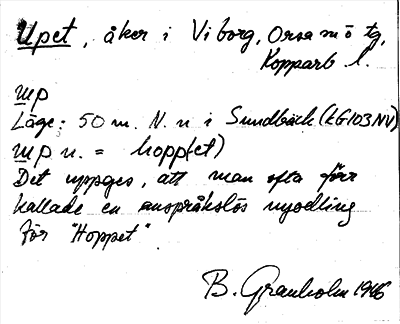 Upet, åker i Viborg, Orsa m ö tg,
Kopparb l.
up
Läge: 50 m. N. n i Sundbäck (KG103NV)
up n. = hopp(et)
Det uppges, att man ofta förr
kallade en anspråkslös nyodling
för "Hoppet".
B. Granholm 1946